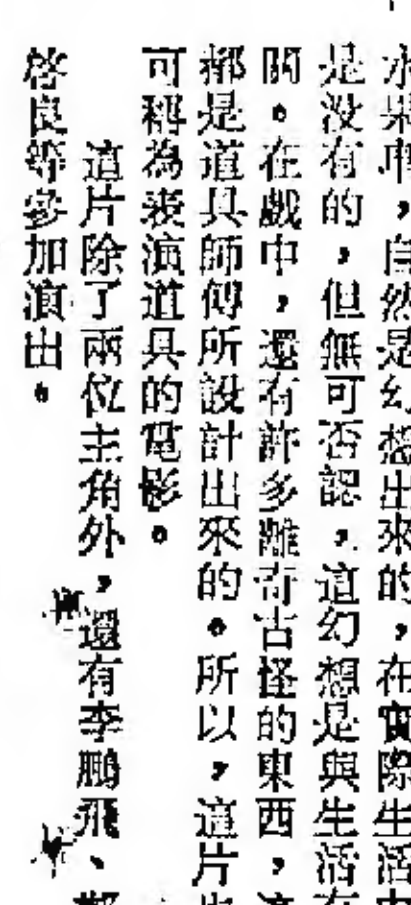 水果車，自然是幻想出來的，在實際生活中
是没有的，但無可否認，這幻想是與生活有
關。在戲中，還有許多離奇古怪的東西，這
都是道具師傅所設計出來的。所以，這片也
可稱為表演道具的電影。
這片除了兩位主角外，還有李鵬飛、鄭
啓良等參加演出。